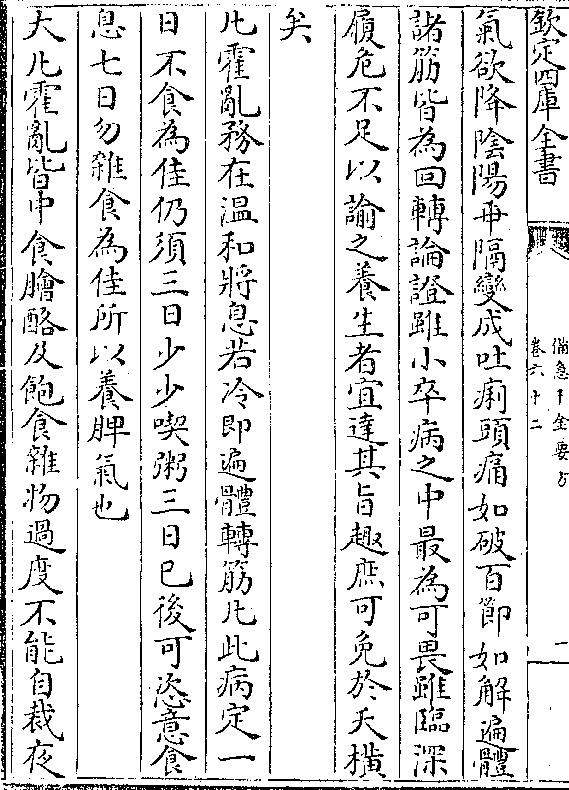 欽定四庫全書
備急千金要方
卷六十二
氣欲降陰陽再隔變成吐痢頭痛如破百節如解遍體
諸筋皆為回轉論證雖小卒病之中最為可畏雖臨深
履危不足以諭之養生者宜達其旨趣庶可免於夭橫
矣
凡霍亂務在溫和將息若冷即遍體轉筋凡此病定一
日不食為佳仍須三日少少喫粥三日已後可恣意食
息七日勿雜食為佳所以養脾氣也
大凡霍亂皆中食膾酪及飽食雜物過度不能自裁夜